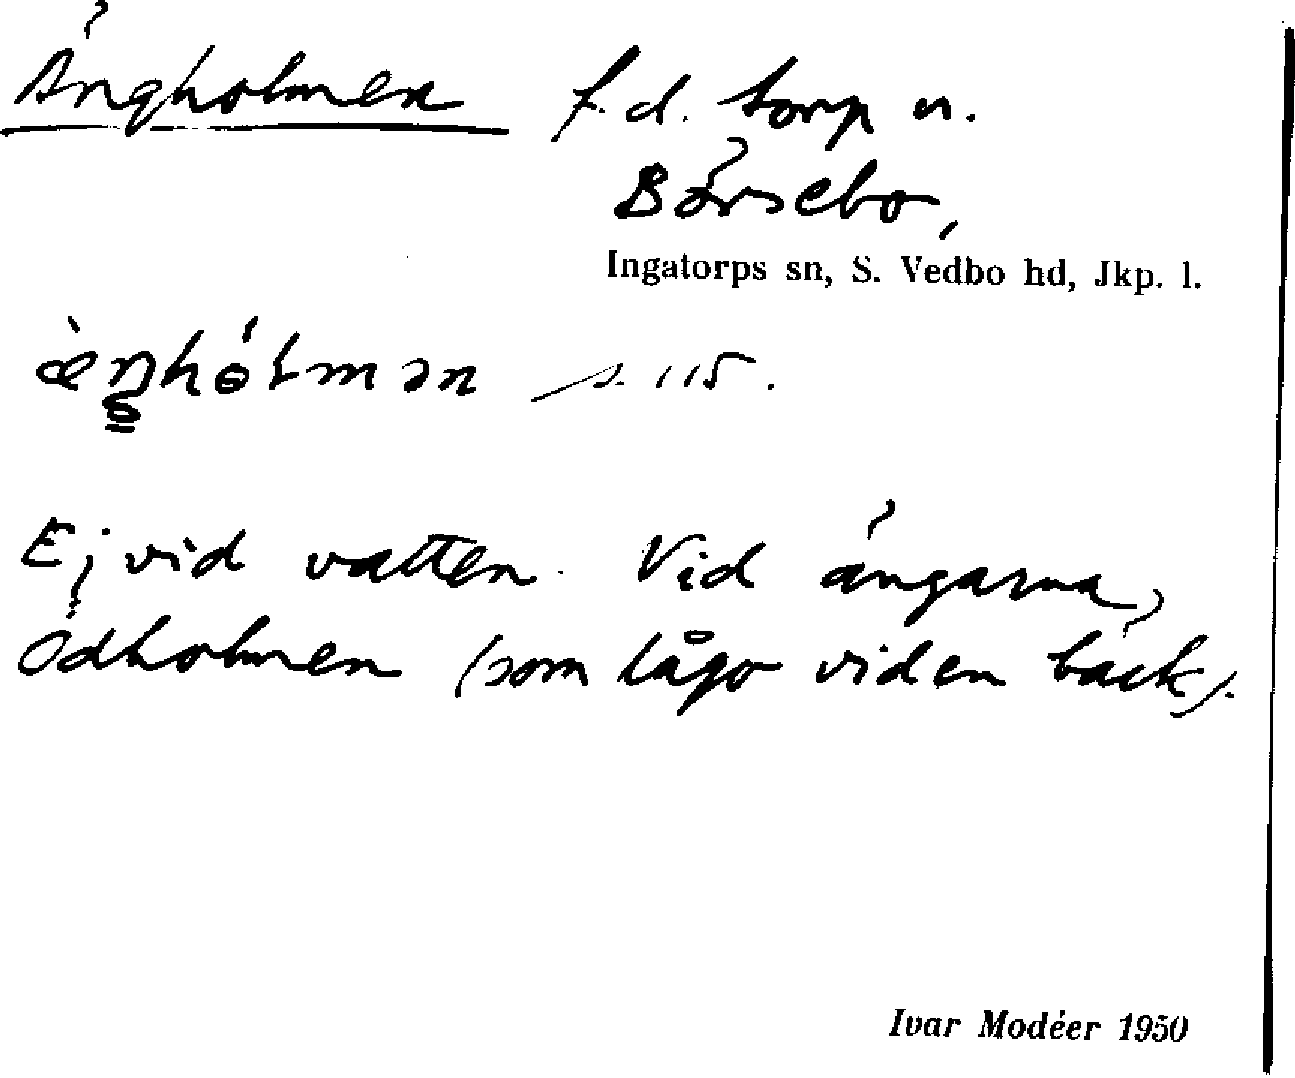 Ängholmen f.d. torp u.
Börsebo,
Ingatorps sn, S. Vedbo hd, Jkp. l.
s. 115.
Ej vid vatten. Vid ängarna,
Ödholmen (som lågo vid en bäck).
Ivar Modéer 1950